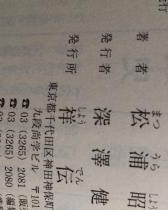 著者 松浦昭
まつ うら
発行者 深澤健
発行所 祥伝
しょう でん
東京都千代田区神田神保町
九段尚学ビル 〒101
☎03(3265)2081(販
☎03(3265)2080(編